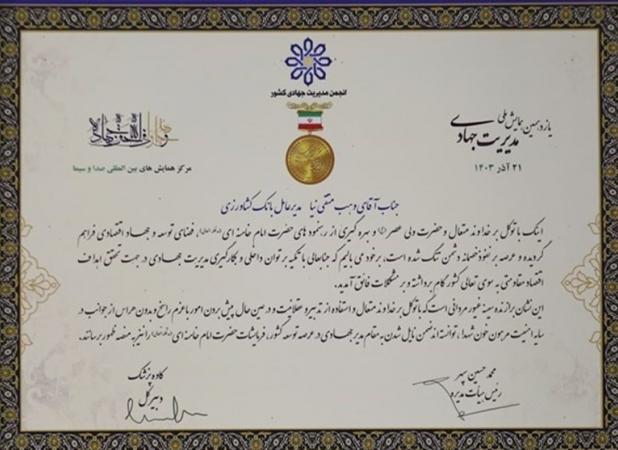 انجمن مدیریت جهادی کشور
یازدهمین همایش ملی
مدیریت جهادی
۲۱ آذر ۱۴۰۳
مرکز همایش های بین المللی صدا و سیما
جناب آقای وهب متقی نیا مدیرعامل بانک کشاورزی
اینک با توکل بر خداوند متعال و حضرت ولی عصر و بهره گیری از رهنمودهای حضرت امام خامنه ای، فضای توسعه و جهاد اقتصادی فراهم
گردیده و عرصه بر نفوذ خصمانه دشمن تنگ شده است، برخود می بالیم که جنابعالی با تکیه بر توان داخلی و بکارگیری مدیریت جهادی در جهت تحقق اهداف
اقتصاد مقاومتی به سوی تعالی کشور گام برداشته و بر مشکلات فائق آمدید.
این نشان برازنده سینه غیور مردانی است که با توکل بر خداوند متعال و استفاده از تدبیر و عقلانیت و در عین حال پیش بردن امور با عزم راسخ و بدون هراس از جوانب در
سایه امنیت مرهون خون شهدا، توانسته اند ضمن نایل شدن به مقام مدیر جهادی در عرصه توسعه کشور، فرمایشات حضرت امام خامنه ای را نیز به منصه ظهور برسانند.
محمد حسین سپهر
رئیس هیات مدیره
کاوه پزشک
دبیر کل